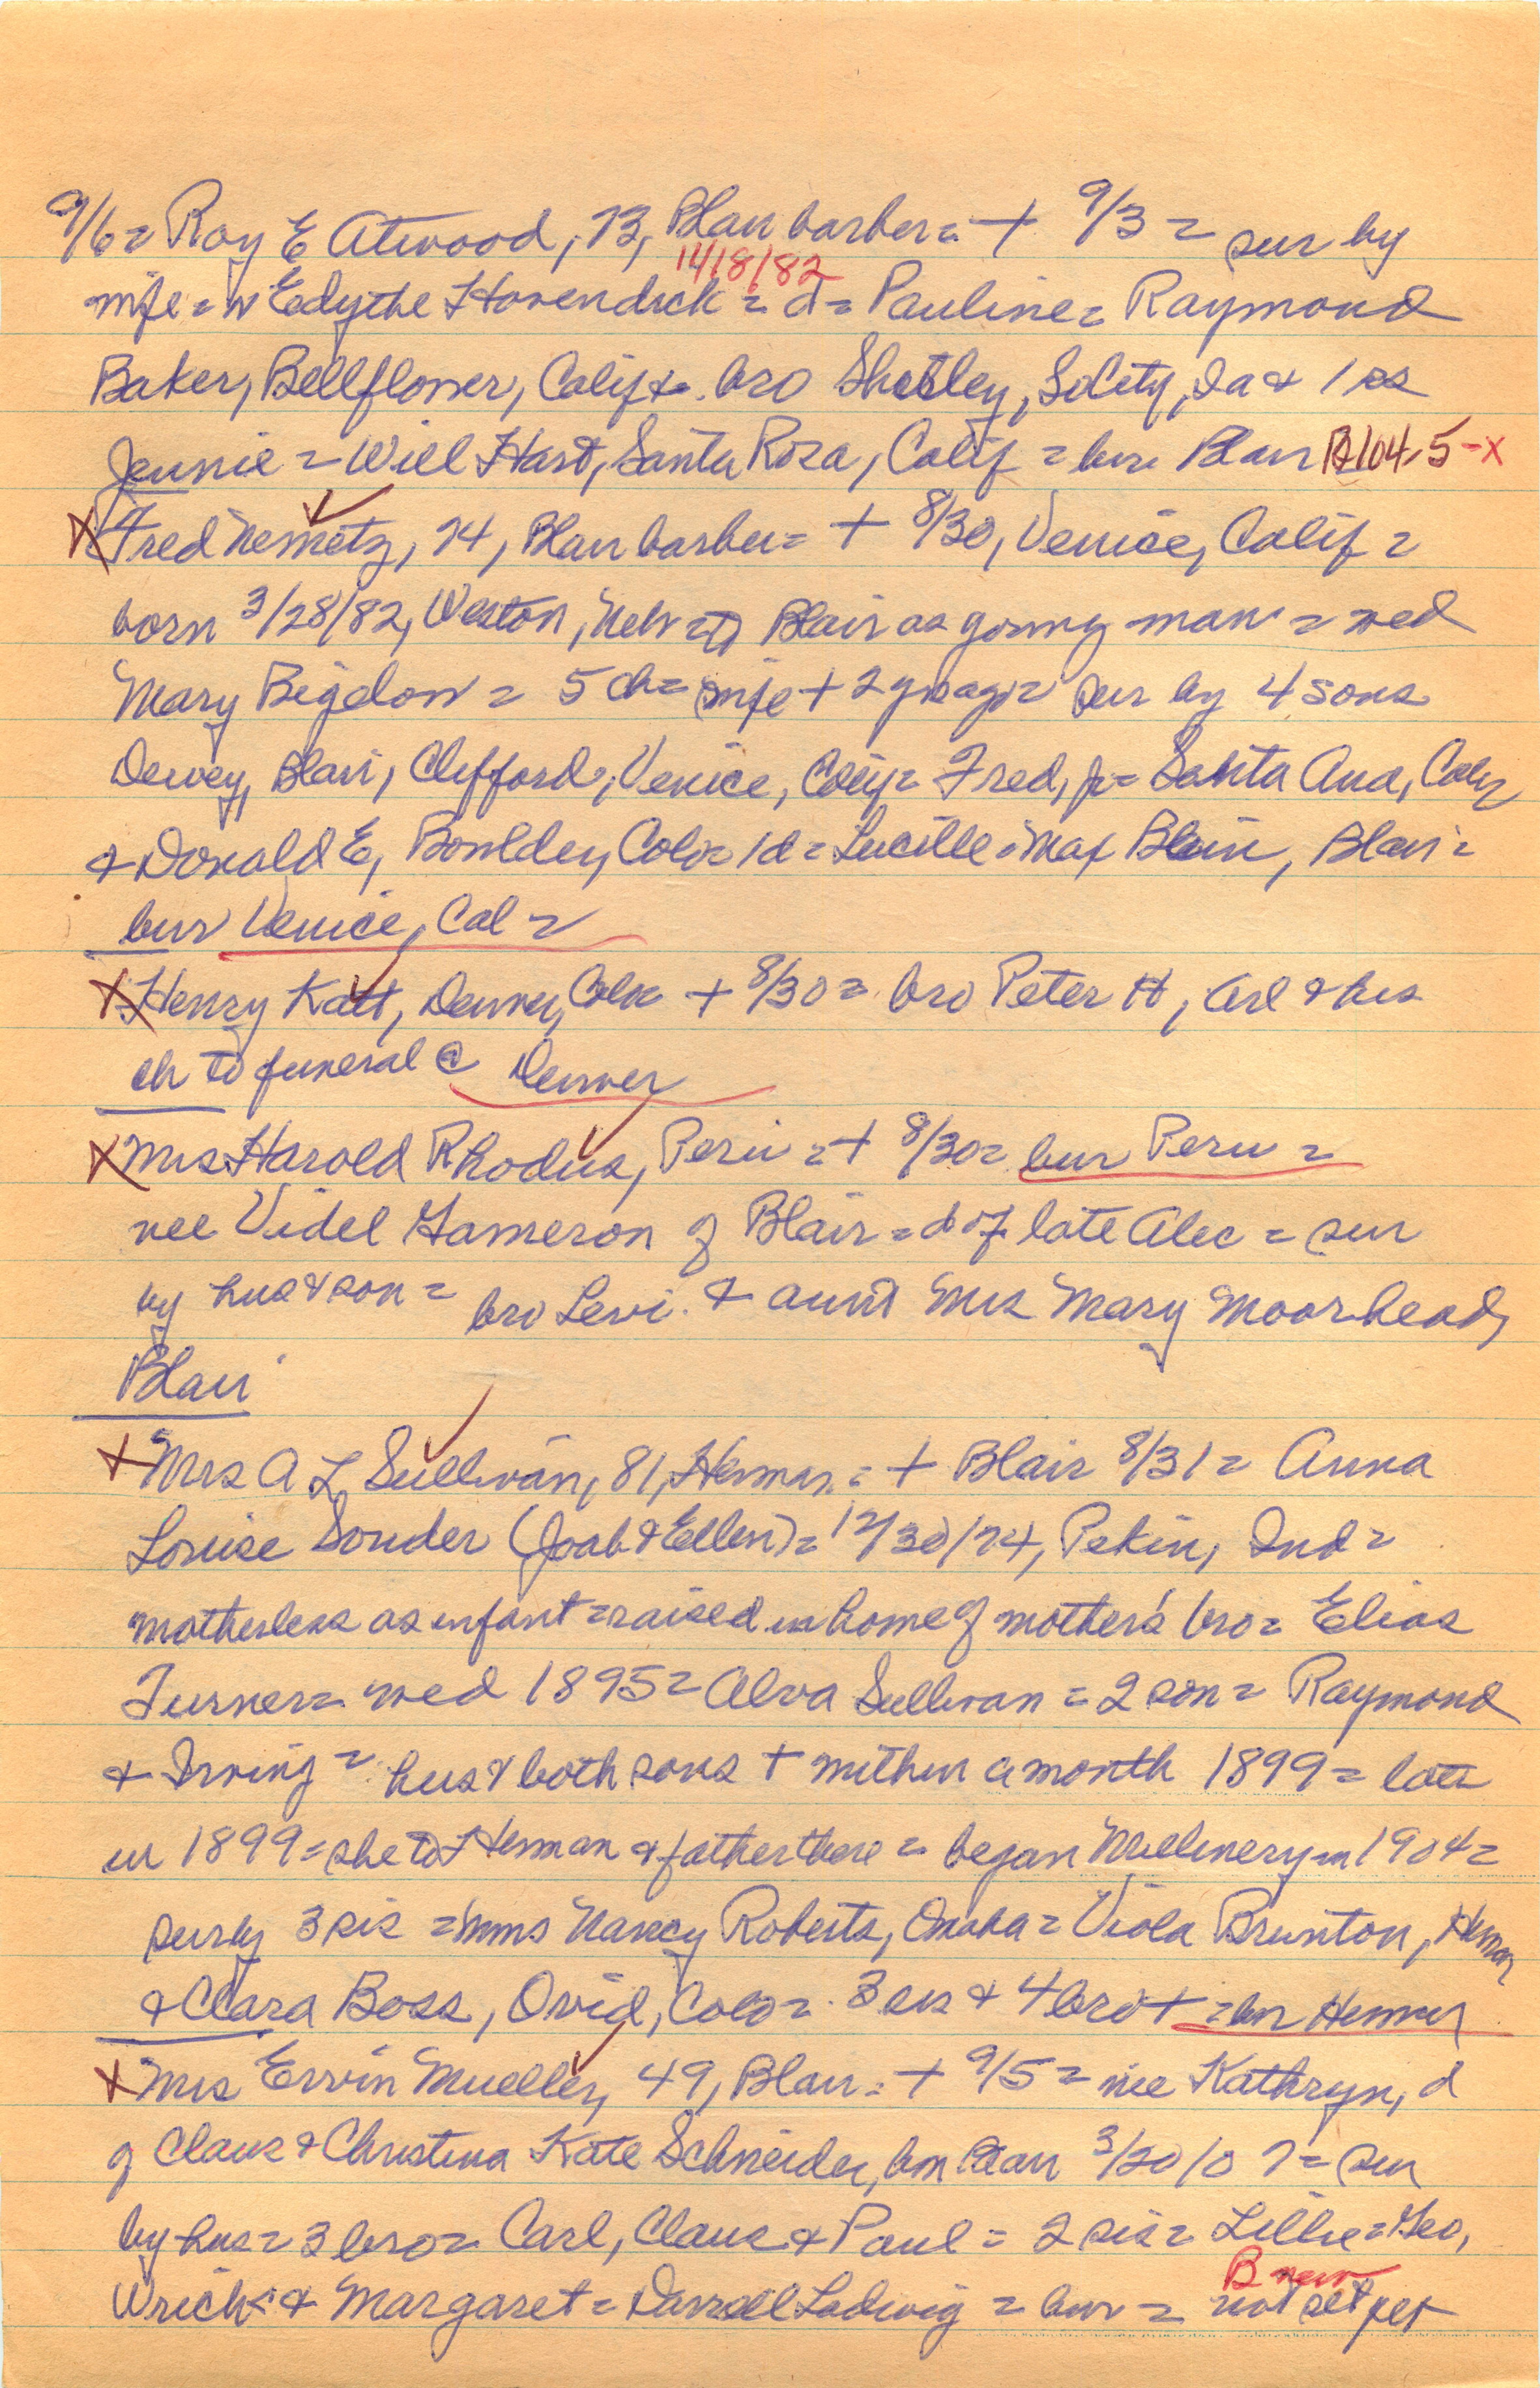 9/6 = Roy E Atwood, 73, Blair barber = + 9/3 = sur by
14/8/82
wife = w Edythe Hovendick = d = Pauline = Raymond
Baker, Bellflower, Calif & bro Shetley, SoCity, Ia & 1 sis
Jennie = Will Hart, Santa Rosa, Calif = bur Blair R104-5-X
X Fred Nemetz, 74, Blair barber = + 8/30, Venice, Calif =
born 3/28/82, Weston, Nebr = to Blair as young man = wed
Mary Bigelow = 5 ch = wife + 2 yrs ago = sur by 4 sons
Dewey, Blair, Clifford, Venice, Calif = Fred, jr = Santa Ana, Calif
& Donald E, Boulder, Colo = 1 d = Lucille = Max Blain, Blair =
bur Venice, Cal =
X Henry Katt, Denver, Colo + 8/30 = bro Peter H, Arl & his
ch to funeral @ Denver
X Mrs Harold Rhodus, Peru = + 8/30 = bur Peru =
nee Videl Gameron of Blair = d of late Alec = sur
by hus & son = bro Levi & aunt Mrs Mary Moorhead,
Blair
X Mrs A L Sullivan, 81, Herman = + Blair 8/31 = Anna
Louise Souder (Joab & Ellen) = 12/30/74, Pekin, Ind =
motherless as infant = raised in home of mother's bro = Elias
Turner = wed 1895 = Alva Sullivan = 2 son = Raymond
& Irving = hus & both sons + within a month 1899 = late
in 1899 = she to Herman & father there = began Millinery in 1904 =
sur by 3 sis = Mms Nancy Roberts, Omaha = Viola Brunton, Herman
& Clara Boss, Ovid, Colo = 3 sis & 4 bro + = bur Herman
X Mrs Ervin Mueller, 49, Blair = + 9/5 = nee Kathryn, d
of Claus & Christina Kate Schneider, born Blair 3/20/07 = sur
by hus = 3 bro = Carl, Claus & Paul = 2 sis = Lillie = Geo,
B new
Wrich & Margaret = Darrell Ladwig = bur = not set yet